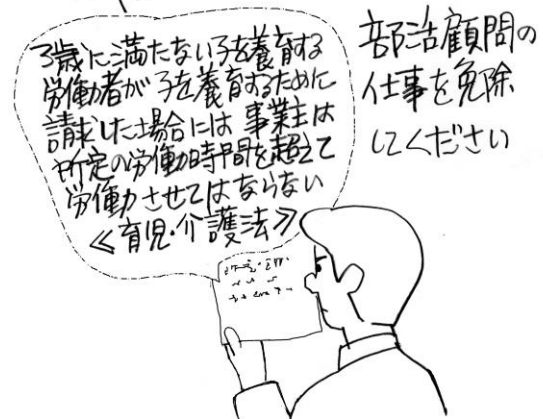 3歳に満たない子を養育する
労働者が子を養育するために
請求した場合には事業主は
所定の労働時間を超えて
労働させてはならない
≪育児・介護法≫
部活顧問の
仕事を免除
してください